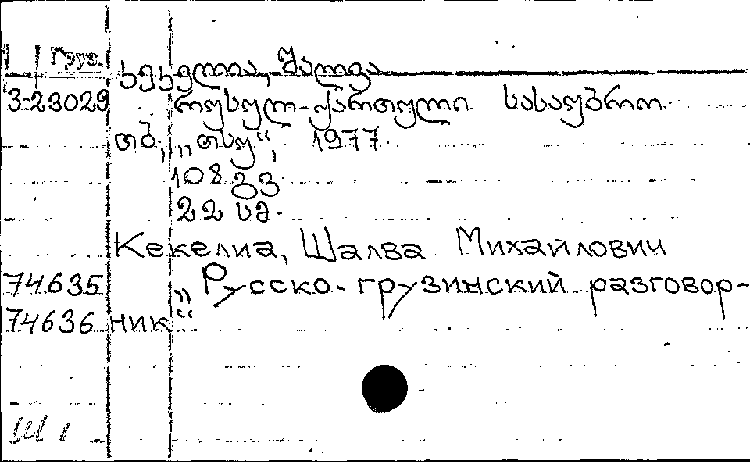 Груз. კეკელია, შალვა
3-23029 რუსულ-ქართული სასაუბრო.
თბ., „თსუ“, 1977.
108 გვ.
22 სმ.
Кекелиа, Шалва Михайлович
74635 „Русско-грузинский разговор-
74636 ник“